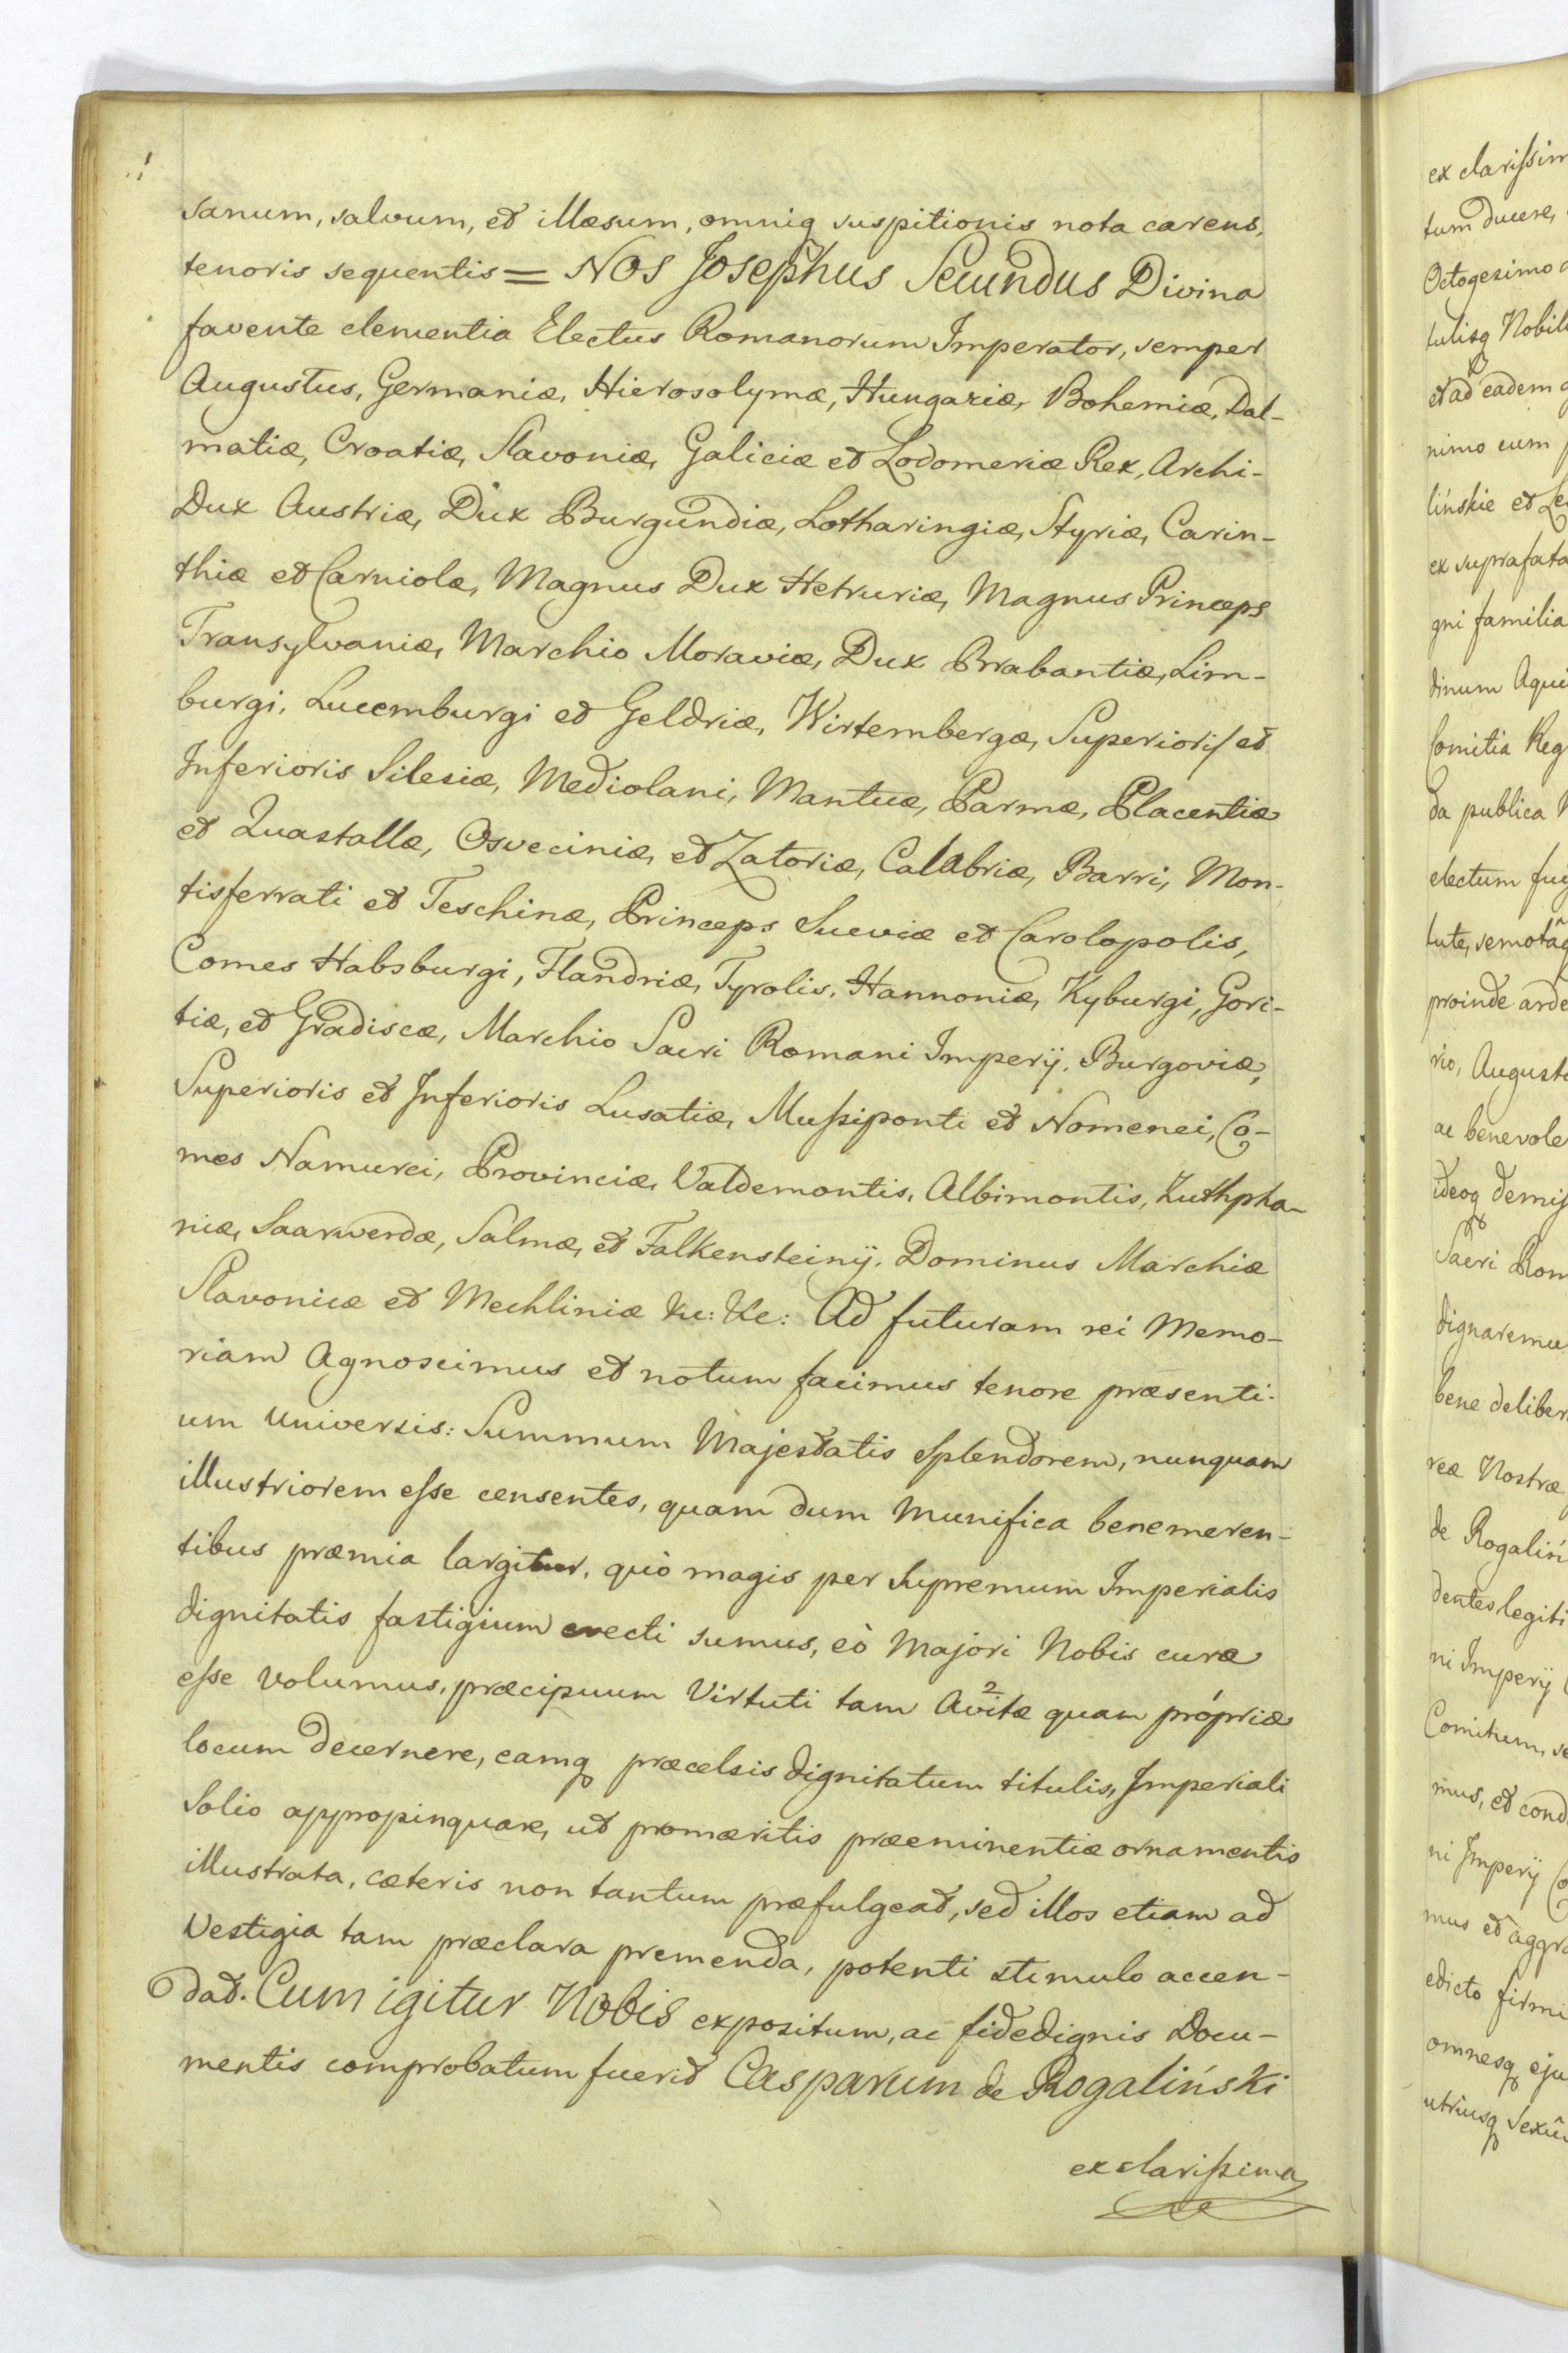 sanum, salvum, et illæsum, omniq suspitionis nota carens,
tenoris sequentis = NOS Josephus Secundus Divina
favente clementia Electus Romanorum Imperator, semper
Augustus, Germaniæ, Hierosolymæ, Hungariæ, Bohemiæ, Dal-
matiæ, Croatiæ, Slavoniæ, Galiciæ et Lodomeriæ Rex, Archi-
Dux Austriæ, Dux Burgundiæ, Lotharingiæ, Styriæ, Carin-
thiæ et Carniolæ, Magnus Dux Hetruriæ, Magnus Princeps
Transylvaniæ, Marchio Moraviæ, Dux Brabantiæ, Lim-
burgi, Lucemburgi et Geldriæ, Wirtembergæ, Superioris et
Inferioris Silesiæ, Mediolani, Mantuæ, Parmæ, Placentiæ
et Quastallæ, Osveciniæ, et Zatoriæ, Calabriæ, Barri, Mon-
tisferrati et Teschinæ, Princeps Sueviæ et Carolopolis,
Comes Habsburgi, Flandriæ, Tyrolis, Hannoniæ, Kyburgi, Gori-
tiæ, et Gradiscæ, Marchio Sacri Romani Imperij, Burgoviæ,
Superioris et Inferioris Lusatiæ, Mussiponti et Nomenei, Co-
mes Namurci, Provinciæ, Valdemontis, Albimontis, Zuthpha-
niæ, Saarwerdæ, Salmæ, et Falkensteinij, Dominus Marchiæ
Slavonicæ et Mechliniæ &c: &c: Ad futuram rei Memo-
riam Agnoscimus et notum facimus tenore præsenti-
um Universis: Summum Majestatis Splendorem, nunquam
illustriorem esse censentes, quam dum Munifica benemeren-
tibus præmia largitur, quò magis per Supremum Imperialis
dignitatis fastigium evecti sumus, eò Majori Nobis curæ
esse volumus, præcipuum Virtuti tam Avitæ quam própriæ
locum decernere, eamq præcelsis dignitatum titulis, Imperiali
Solio appropinquare, ut promæritis præeminentiæ ornamentis
illustrata, cæteris non tantum præfulgeat, sed illos etiam ad
Vestigia tam præclara premenda, potenti stimulo accen-
dat. Cum igitur Nobis expositum, ac fidedignis Docu-
mentis comprobatum fuerit Casparum de Rogaliński
ex clarissima
ex clarissim
tum ducere,
Octogesimo
tulisq Nobili
et ad eadem
nimo cum
lińskie et Le
ex suprafata
gni familia
dinum Aqui
Comitia Reg
da publica
electum fu
tute, semotâq
proinde arde
rio, Augusto
ac benevole
ideoq demis
Sacri Rom
dignaremu
bene deliber
reæ Nostræ
de Rogaliń
dentes legiti
ni Imperij
Comitum, se
mus, et cond
ni Imperij Co
mus et aggre
edicto firmi
omnesq eju
utriusq Sexûs